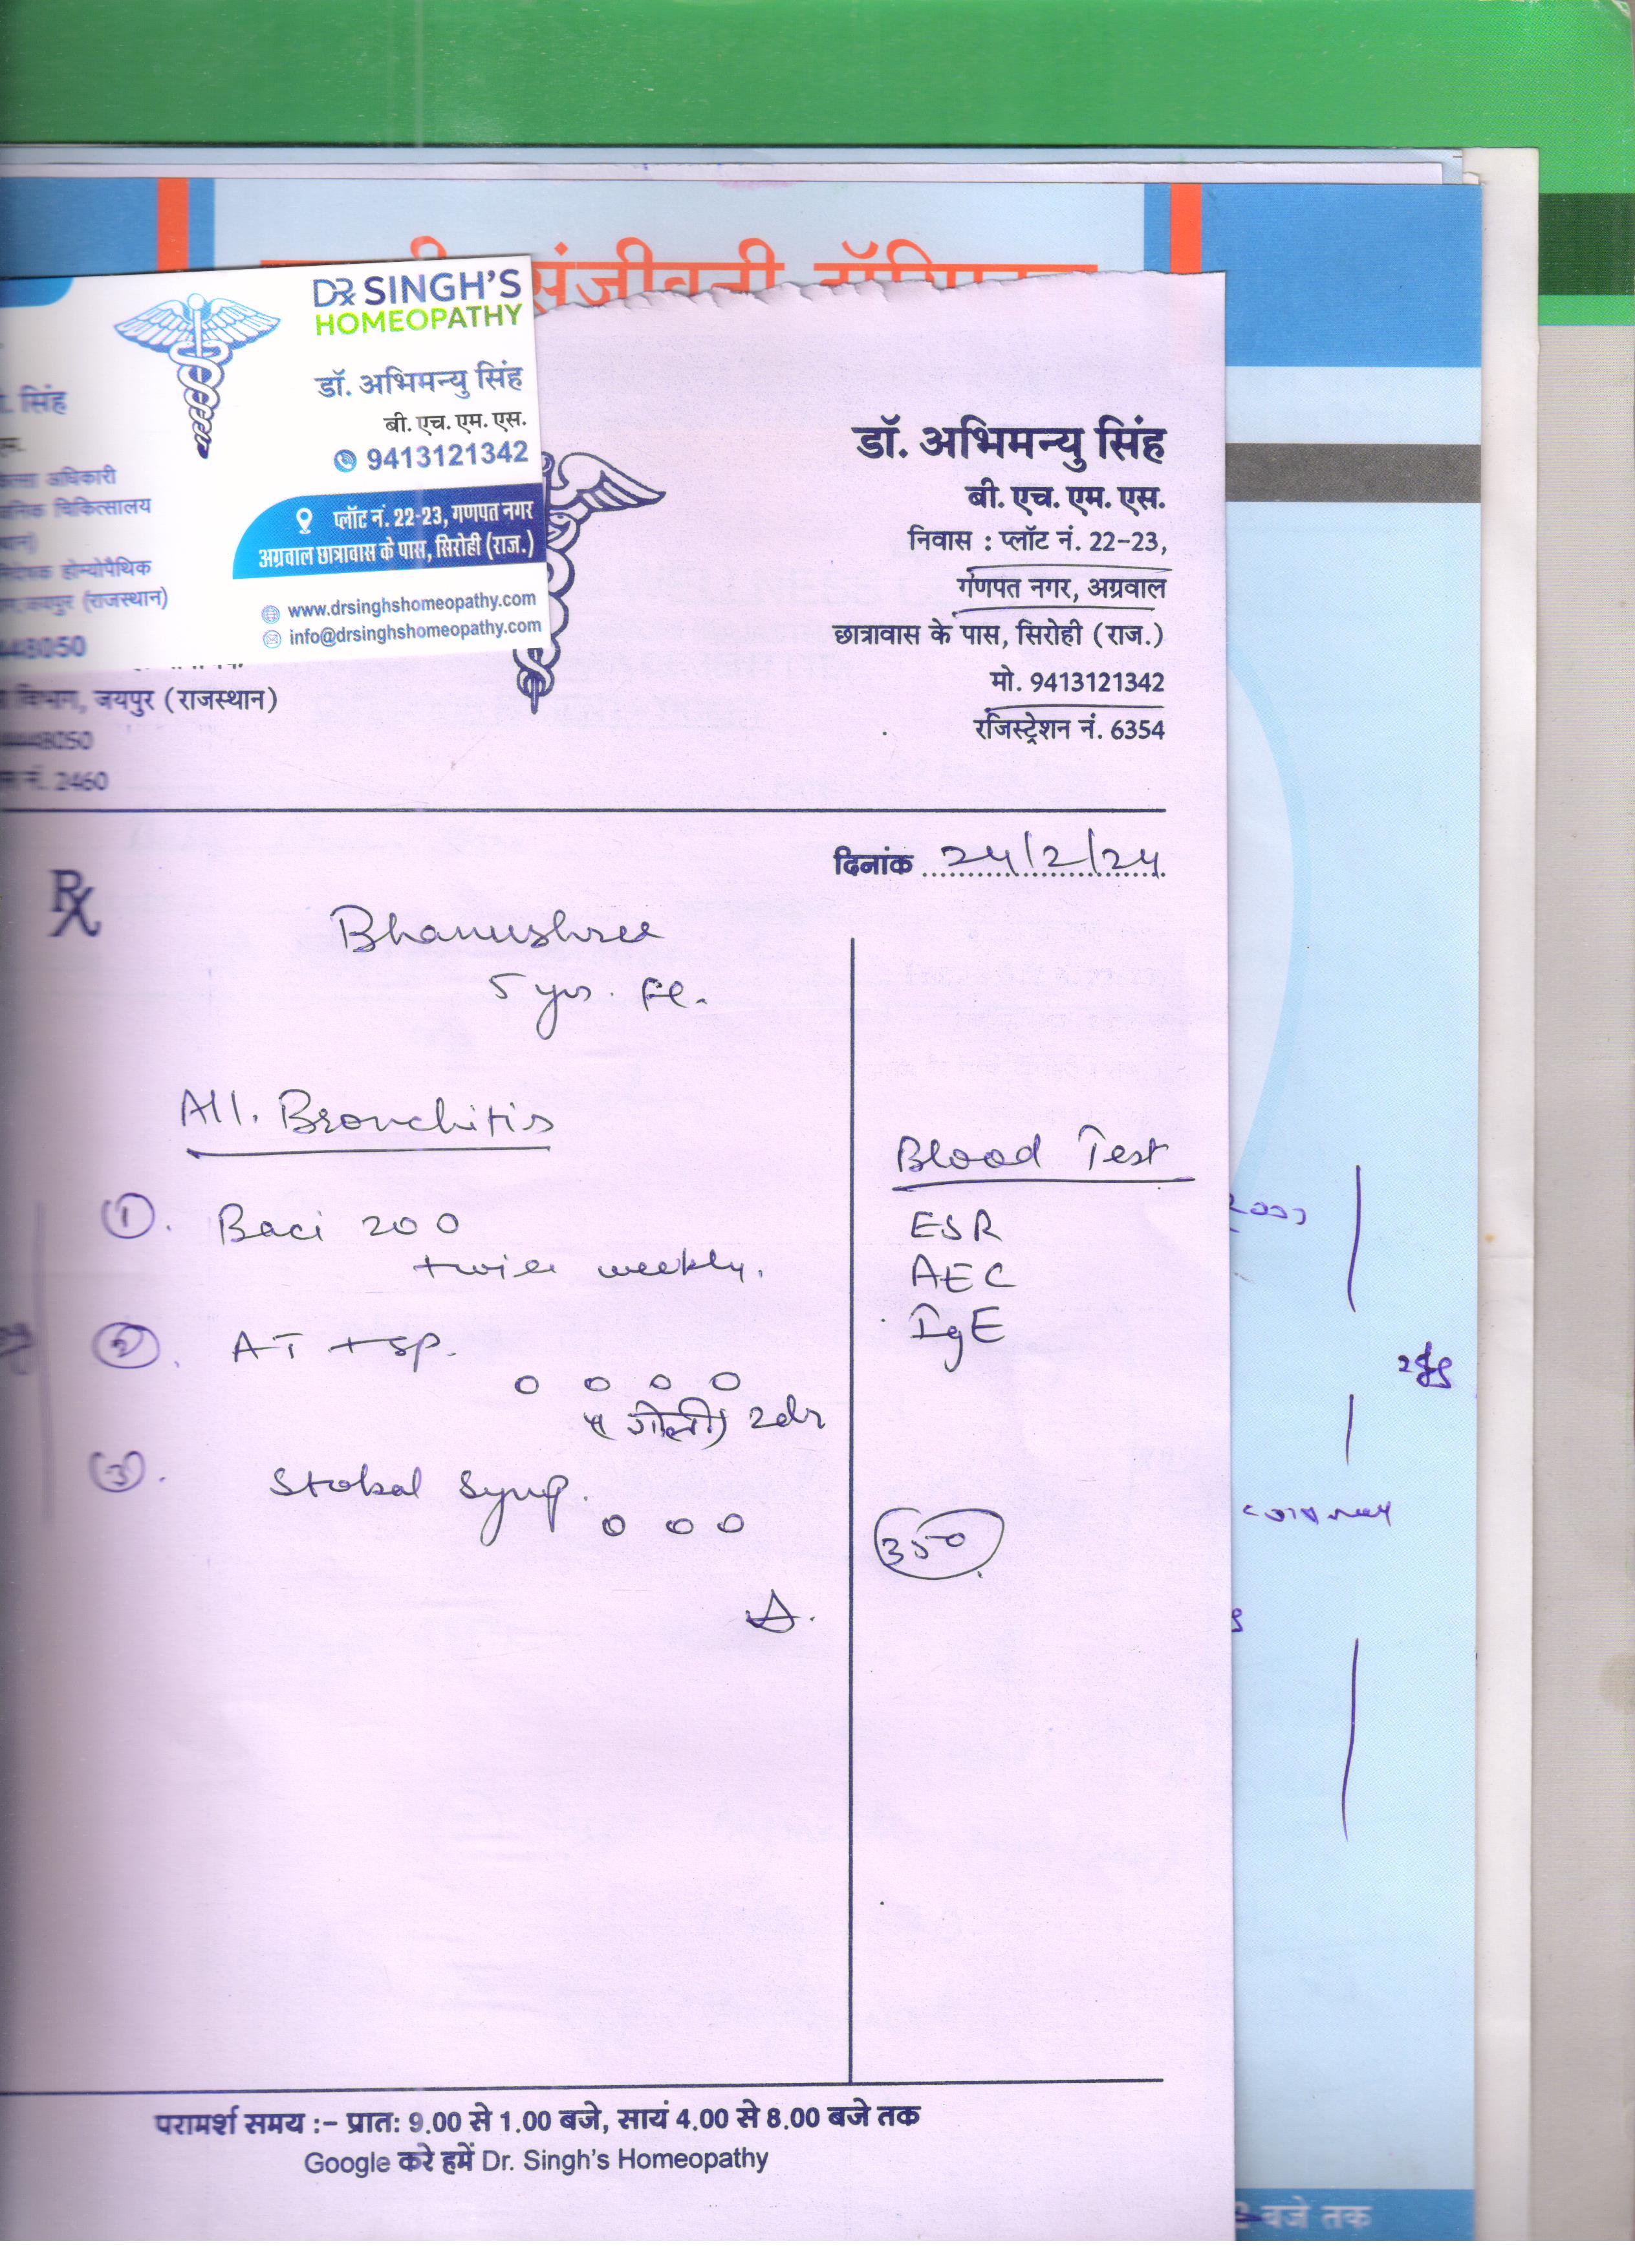 संजीवनी
DR SINGH'S
HOMEOPATHY
डॉ. अभिमन्यु सिंह
बी. एच. एम. एस.
9413121342
प्लॉट नं. 22-23, गणपत नगर
अग्रवाल छात्रावास के पास, सिरोही (राज.)
www.drsinghshomeopathy.com
info@drsinghshomeopathy.com
सिंह
अधिकारी
चिकित्सालय
होम्योपैथिक
जयपुर (राजस्थान)
48050
विभाग, जयपुर (राजस्थान)
48050
नं. 2460
डॉ. अभिमन्यु सिंह
बी. एच. एम. एस.
निवास : प्लॉट नं. 22-23,
गणपत नगर, अग्रवाल
छात्रावास के पास, सिरोही (राज.)
मो. 9413121342
रजिस्ट्रेशन नं. 6354
दिनांक 24/2/24
Rx
Bhanushree
5 yrs. Fe.
All. Bronchitis
1. Baci 200
twice weekly.
2. AT + sp.
o o o o
(गोली) 2dr
3. Stobal Syrup.
o o o
Blood Test
ESR
AEC
IgE
350
परामर्श समय :- प्रात: 9.00 से 1.00 बजे, सायं 4.00 से 8.00 बजे तक
Google करे हमें Dr. Singh's Homeopathy
बजे तक